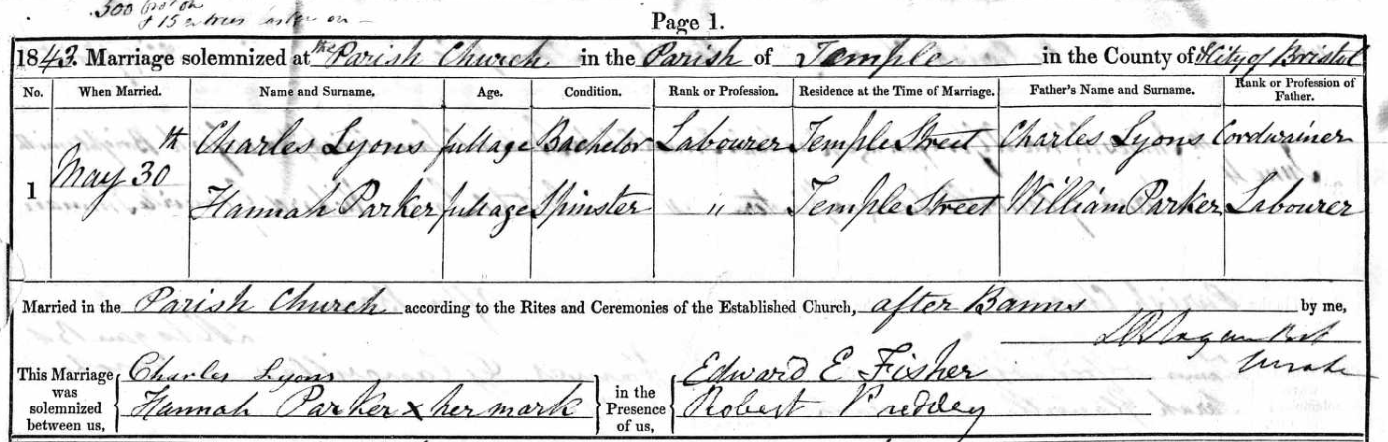 500
& 15 entries
Page 1.
1843. Marriage solemnized at the Parish Church in the Parish of Temple in the County of City of Bristol
No. When Married. Name and Surname. Age. Condition. Rank or Profession. Residence at the Time of Marriage. Father's Name and Surname. Rank or Profession of Father.
1 May 30th Charles Lyons full age Bachelor Labourer Temple Street Charles Lyons Cordwainer
Hannah Parker full age Spinster " Temple Street William Parker Labourer
Married in the Parish Church according to the Rites and Ceremonies of the Established Church, after Banns by me,
This Marriage was solemnized between us, Charles Lyons in the Presence of us, Edward E Fisher
Hannah Parker x her mark Robert Priddey